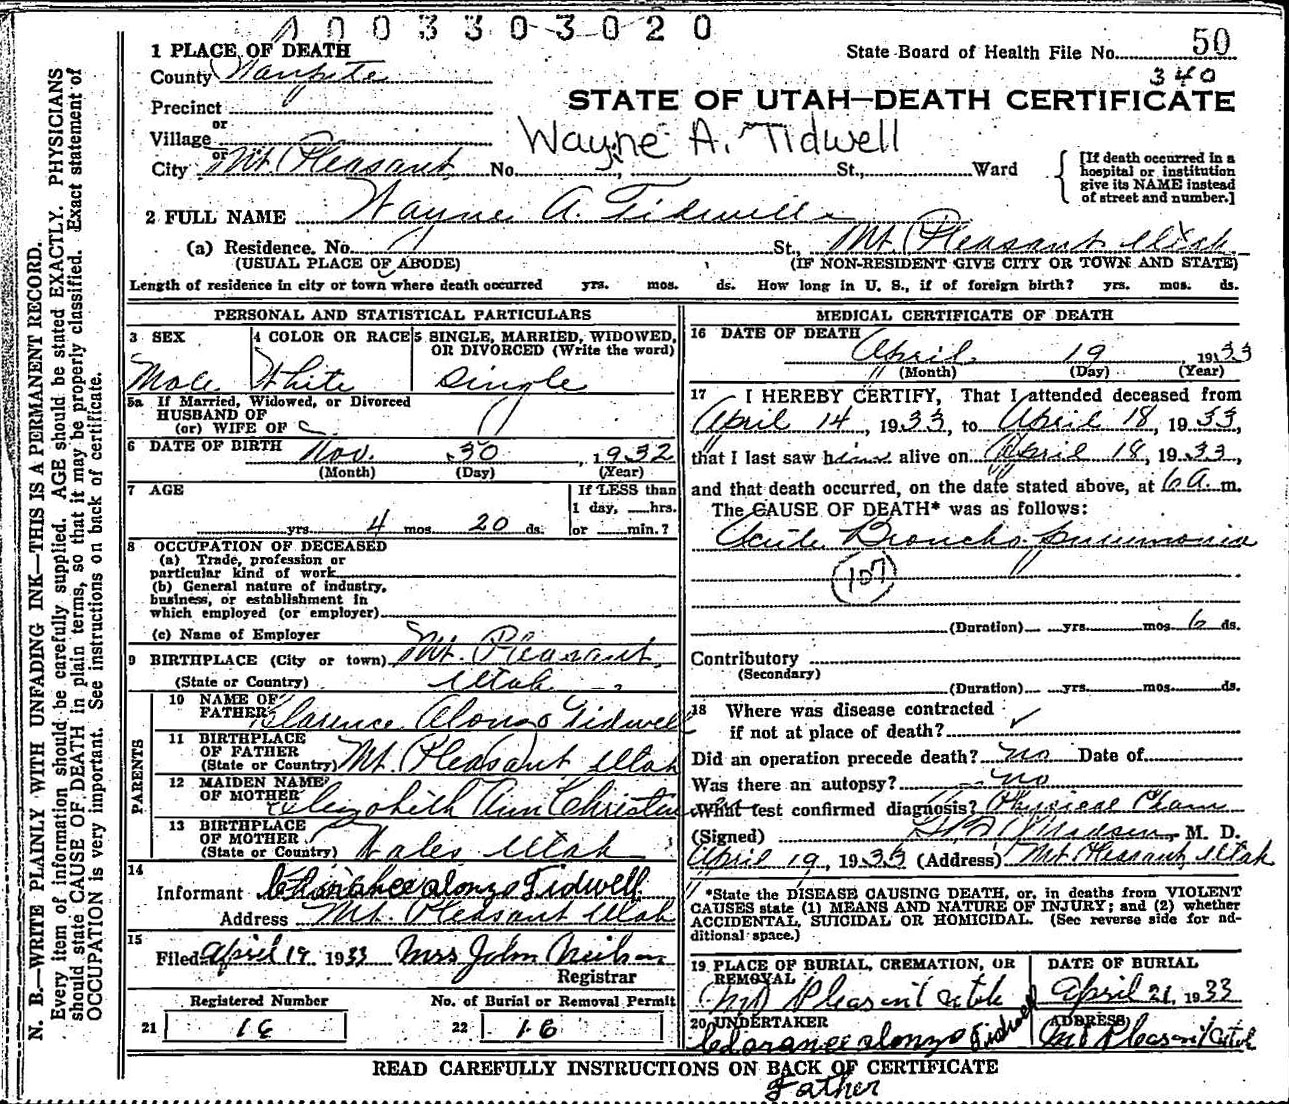 N. B.—WRITE PLAINLY WITH UNFADING INK—THIS IS A PERMANENT RECORD.
Every item of information should be carefully supplied. AGE should be stated EXACTLY. PHYSICIANS
should state CAUSE OF DEATH in plain terms, so that it may be properly classified. Exact statement of
OCCUPATION is very important. See instructions on back of certificate.
400330-3020
State Board of Health File No. 50
340
STATE OF UTAH—DEATH CERTIFICATE
Wayne A. Tidwell
1 PLACE OF DEATH
County Sanpete
Precinct
or
Village
or
City Mt. Pleasant No. , St., Ward
[If death occurred in a
hospital or institution
give its NAME instead
of street and number.]
2 FULL NAME Wayne A. Tidwell
(a) Residence. No. St., Mt. Pleasant Utah
(USUAL PLACE OF ABODE) (IF NON-RESIDENT GIVE CITY OR TOWN AND STATE)
Length of residence in city or town where death occurred yrs. mos. ds. How long in U. S., if of foreign birth? yrs. mos. ds.
PERSONAL AND STATISTICAL PARTICULARS
3 SEX 4 COLOR OR RACE 5 SINGLE, MARRIED, WIDOWED,
OR DIVORCED (Write the word)
Male White Single
5a If Married, Widowed, or Divorced
HUSBAND OF
(or) WIFE OF
6 DATE OF BIRTH Nov. 30, 1932
(Month) (Day) (Year)
7 AGE If LESS than
1 day, hrs.
yrs. 4 mos. 20 ds. or min.?
8 OCCUPATION OF DECEASED
(a) Trade, profession or
particular kind of work
(b) General nature of industry,
business, or establishment in
which employed (or employer)
(c) Name of Employer
9 BIRTHPLACE (City or town) Mt. Pleasant,
(State or Country) Utah
PARENTS
10 NAME OF
FATHER Clarence Alonzo Tidwell
11 BIRTHPLACE
OF FATHER
(State or Country) Mt. Pleasant Utah
12 MAIDEN NAME
OF MOTHER Elizabeth Ann
13 BIRTHPLACE
OF MOTHER
(State or Country) Wales Utah
14
Informant Clarance alonzo Tidwell
Address Mt. Pleasant Utah
15
Filed April 19 1933 Mrs John Neilson
Registrar
Registered Number No. of Burial or Removal Permit
21 22
MEDICAL CERTIFICATE OF DEATH
16 DATE OF DEATH
April 19, 1933
(Month) (Day) (Year)
17 I HEREBY CERTIFY, That I attended deceased from
April 14, 1933, to April 18, 1933,
that I last saw him alive on April 18, 1933,
and that death occurred, on the date stated above, at 6 A. m.
The CAUSE OF DEATH* was as follows:
Acute Broncho pneumonia
107
(Duration) yrs. mos. 6 ds.
Contributory
(Secondary)
(Duration) yrs. mos. ds.
18 Where was disease contracted
if not at place of death? ✓
Did an operation precede death? no Date of
Was there an autopsy? no
What test confirmed diagnosis? Physical Exam
(Signed) Madsen, M. D.
April 19, 1933 (Address) Mt. Pleasant, Utah
*State the DISEASE CAUSING DEATH, or, in deaths from VIOLENT
CAUSES state (1) MEANS AND NATURE OF INJURY; and (2) whether
ACCIDENTAL, SUICIDAL OR HOMICIDAL. (See reverse side for ad-
ditional space.)
19 PLACE OF BURIAL, CREMATION, OR
REMOVAL
Mt Pleasant Utah
DATE OF BURIAL
April 21, 1933
20 UNDERTAKER
Clarance alonzo Tidwell
ADDRESS
Mt Pleasant Utah
READ CAREFULLY INSTRUCTIONS ON BACK OF CERTIFICATE
Father